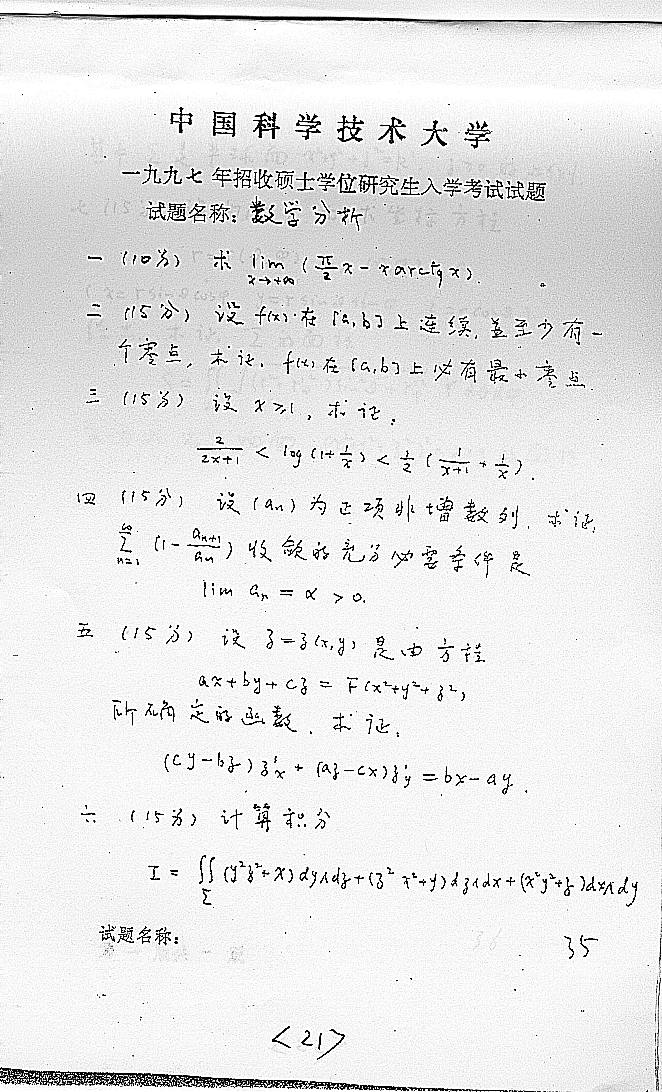 中国科学技术大学
一九九七年招收硕士学位研究生入学考试试题
试题名称：数学分析
一 (10分) 求 lim_{x→+∞} (π/2 x - x arctg x).
二 (15分) 设 f(x) 在 [a,b] 上连续, 并至少有一
个零点, 求证: f(x) 在 [a,b] 上必有最小零点.
三 (15分) 设 x≥1, 求证:
2/(2x+1) < log(1+1/x) < 1/2 (1/(x+1) + 1/x).
四 (15分) 设 (aₙ) 为正项非增数列, 求证,
∑_{n=1}^{∞} (1 - aₙ₊₁/aₙ) 收敛的充分必要条件是
lim aₙ = α > 0.
五 (15分) 设 z=z(x,y) 是由方程
ax+by+cz = F(x²+y²+z²)
所确定的函数, 求证:
(cy-bz)z'ₓ + (az-cx)z'_y = bx-ay.
六 (15分) 计算积分
I = ∬_Σ (y²z²+x)dy∧dz+(z²x²+y)dz∧dx+(x²y²+z)dx∧dy
试题名称：
35
<21>